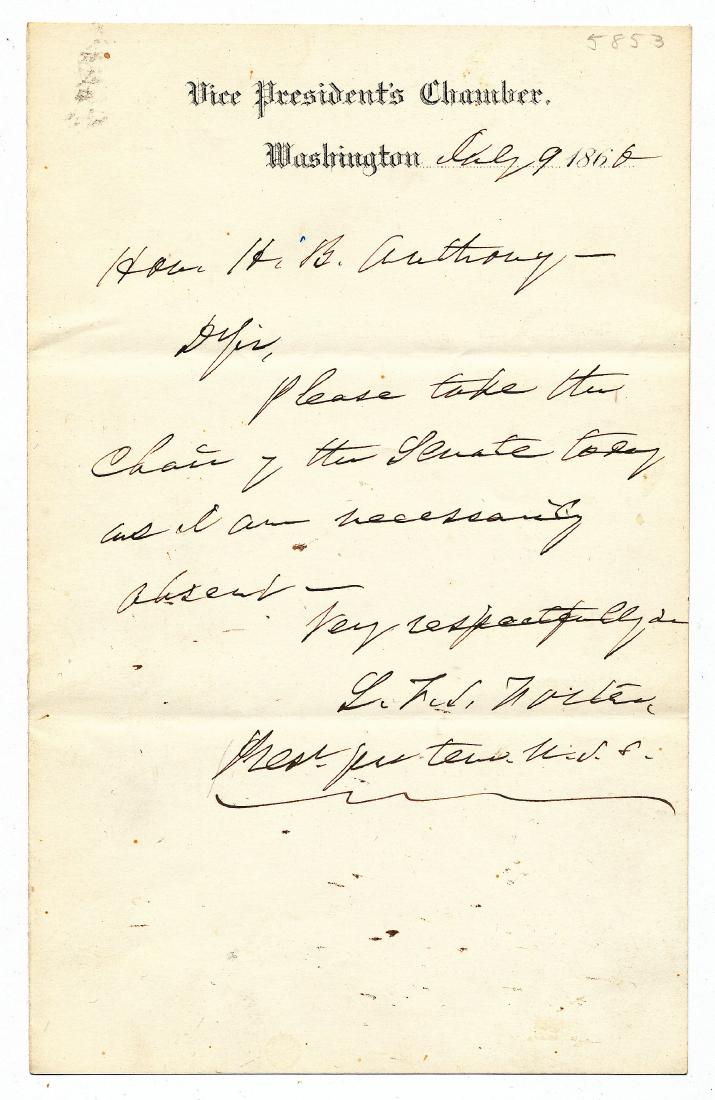 5853
Vice President's Chamber.
Washington July 9 1866
Hon. H. B. Anthony —
D Sir,
Please take the
Chair of the Senate today
as I am necessarily
absent —
Very respectfully
L. F. S. Foster,
Prest pro tem. U. S. S.